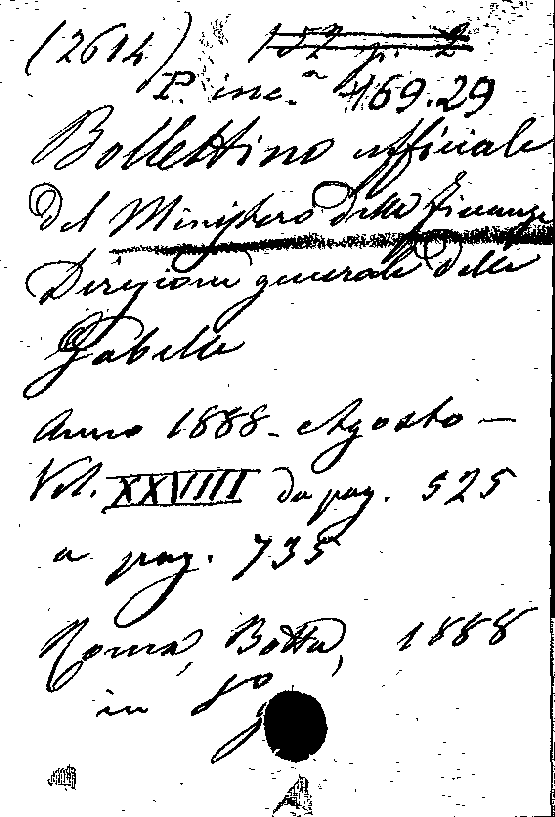 (2614) 152 p. 2
P. inc.ᵃ 469.29
Bollettino ufficiale
del Ministero delle Finanze
Direzione generale delle
Gabelle
Anno 1888 - Agosto —
Vol. XXVIIII da pag. 525
a pag. 735
Roma, Botta, 1888
in 8º